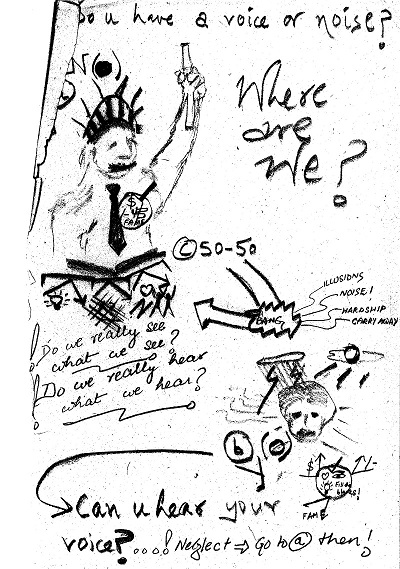 Do u have a voice or noise?
Where
are
We?
$
FAME
© 50-50
BANG
ILLUSIONS
NOISE!
HARDSHIP
CARRY AWAY
Do we really see
what we see?
Do we really hear
what we hear?
b
$
FAME
Can u hear your
voice?....! Neglect ⇒ Go to ⓐ then!